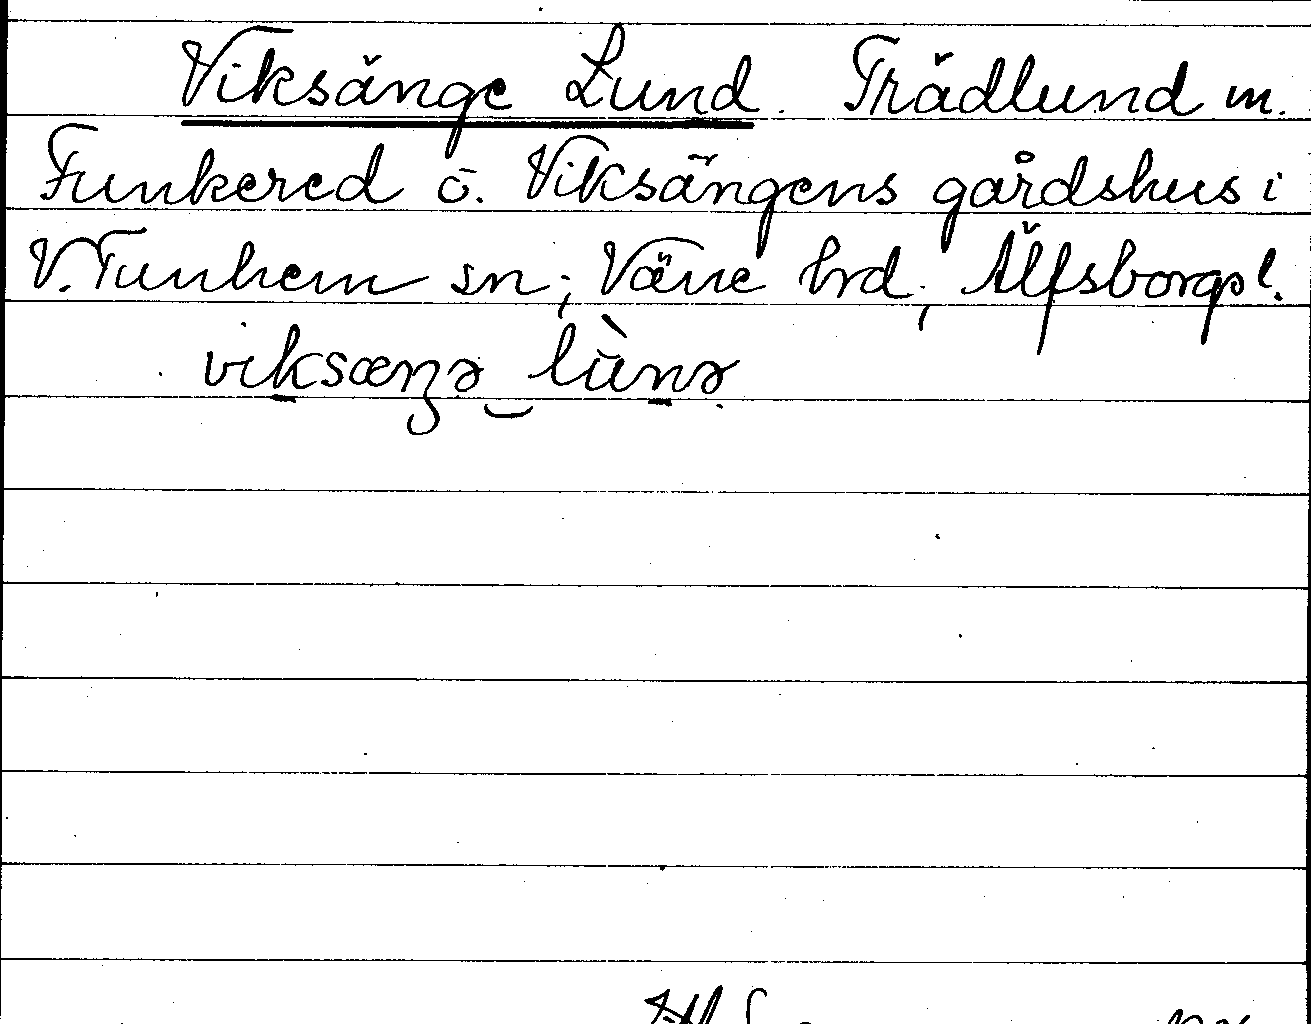 Viksänge Lund. Trädlund m.
Funkered o. Viksängens gårdshus i
V. Tunhem sn; Väne hrd; Älfsborgs l.
viksæŋə lùnə